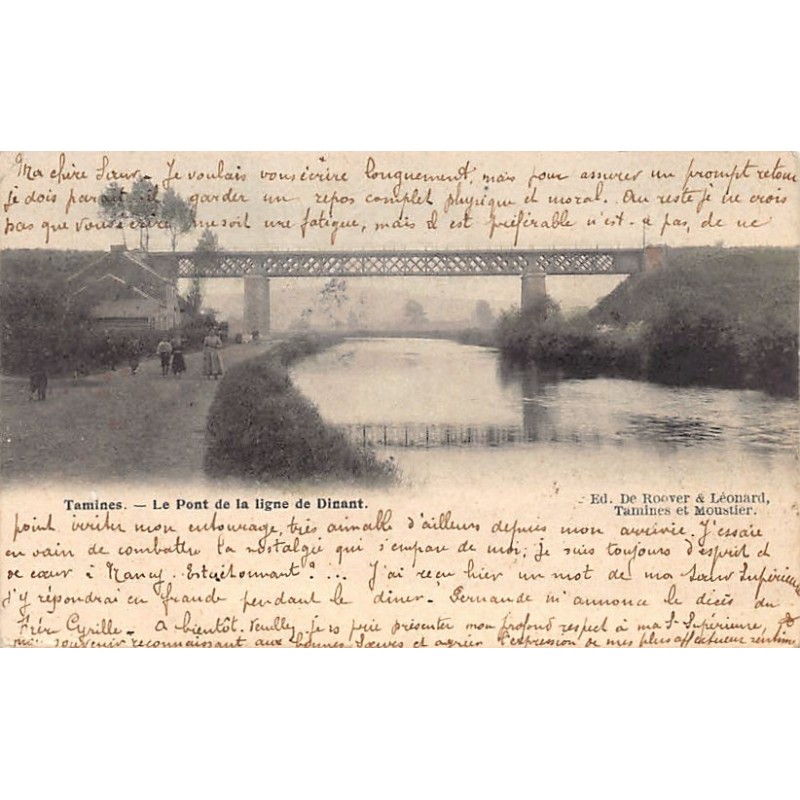 Ma chère Sœur. Je voulais vous écrire longuement, mais pour assurer un prompt retour
je dois paraît-il garder un repos complet physique et moral. Au reste je ne crois
pas que vous écrire me soit une fatigue, mais il est préférable n'est-à pas, de ne
Tamines. — Le Pont de la ligne de Dinant.
Ed. De Roover & Léonard,
Tamines et Moustier.
point irriter mon entourage, très aimable d'ailleurs depuis mon arrivée. J'essaie
en vain de combattre la nostalgie qui s'empare de moi; je suis toujours d'esprit et
de cœur à Nancy. Est-ce étonnant? ... J'ai reçu hier un mot de ma Sœur Supérieure
j'y répondrai en fraude pendant le dîner. Fernande m'annonce le décès du
Frère Cyrille. A bientôt. Veuillez, je vs prie présenter mon profond respect à ma S. Supérieure,
souvenir reconnaissant aux bonnes Sœurs et agréer l'expression de mes plus affectueux sentim